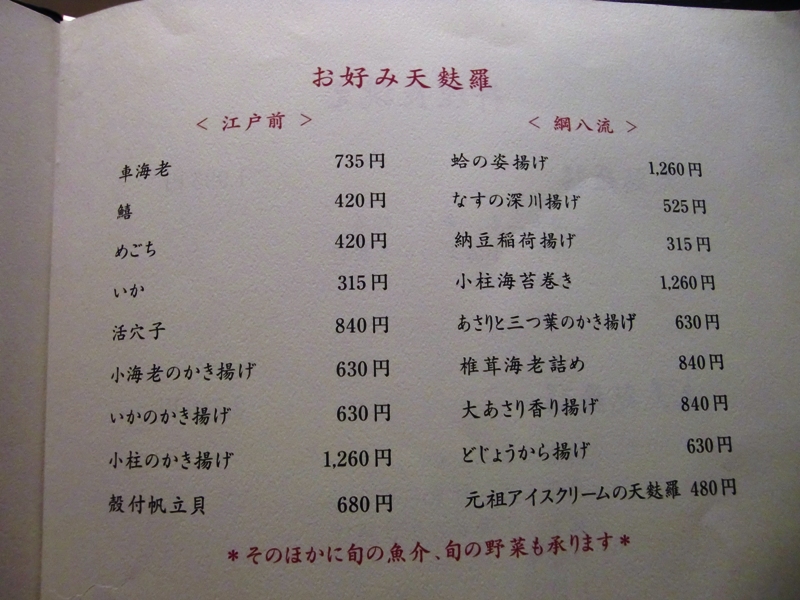 お好み天麩羅
＜江戸前＞
車海老 735円
鱚 420円
めごち 420円
いか 315円
活穴子 840円
小海老のかき揚げ 630円
いかのかき揚げ 630円
小柱のかき揚げ 1,260円
殻付帆立貝 680円
＜綱八流＞
蛤の姿揚げ 1,260円
なすの深川揚げ 525円
納豆稲荷揚げ 315円
小柱海苔巻き 1,260円
あさりと三つ葉のかき揚げ 630円
椎茸海老詰め 840円
大あさり香り揚げ 840円
どじょうから揚げ 630円
元祖アイスクリームの天麩羅 480円
＊そのほかに旬の魚介、旬の野菜も承ります＊